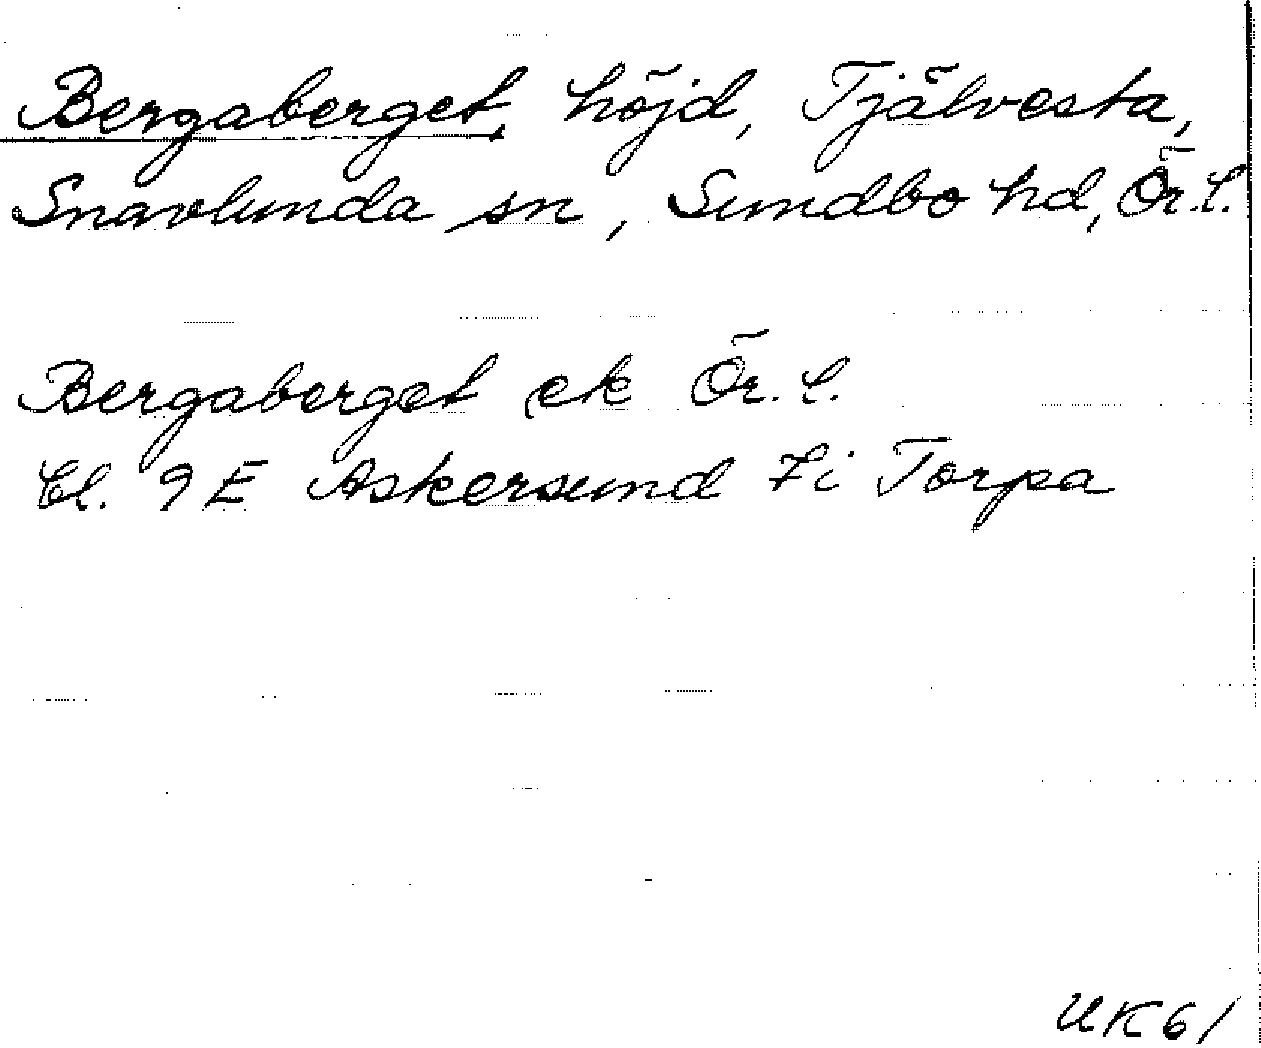 Bergaberget, höjd, Tjälvesta,
Snavlunda sn, Sundbo hd, Ör.l.
Bergaberget ek Ör.l.
Bl. 9E Askersund 7i Torpa
UK61